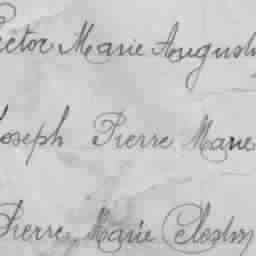 Victor Marie August
Joseph Pierre Marie
Pierre Marie Celestin